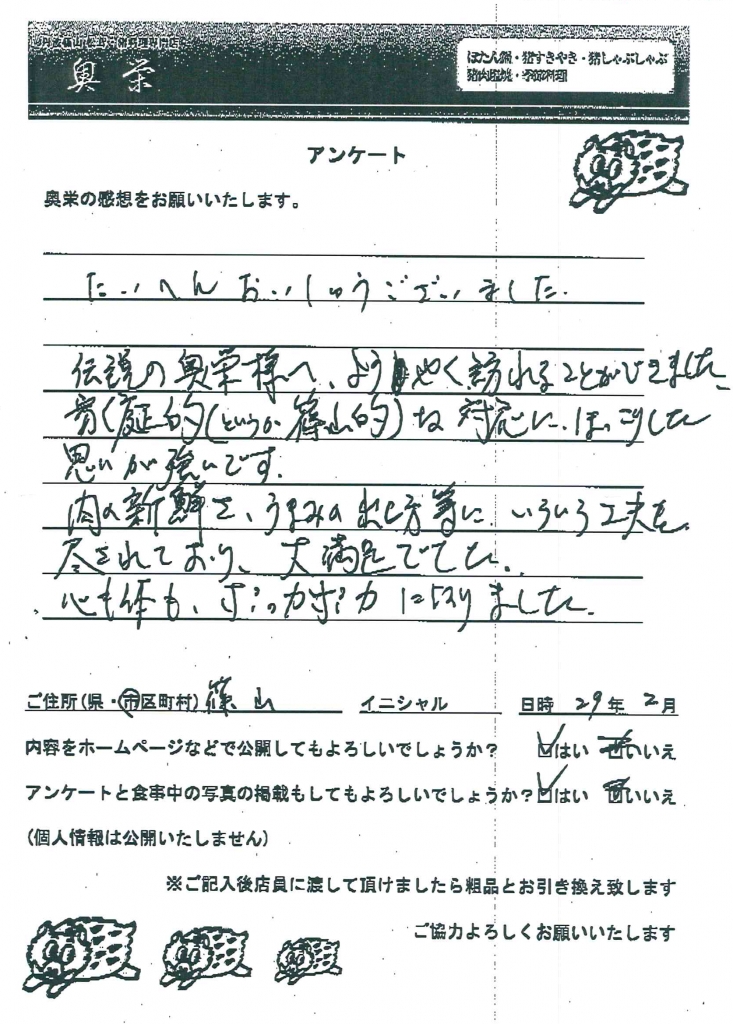 奥栄
ぼたん鍋・猪すきやき・猪しゃぶしゃぶ
アンケート
奥栄の感想をお願いいたします。
たいへんおいしゅうございました。
伝説の奥栄様へ、ようやく訪れることができました。
家庭的(というか篠山的)な対応に、ほっこりした
思いが強いです。
肉の新鮮さ、うまみの出し方等に、いろいろ工夫を
尽されており、大満足でした。
心も体も、ポッカポカになりました。
ご住所(県・市区町村) 篠山 イニシャル 日時 29年 2月
内容をホームページなどで公開してもよろしいでしょうか? はい いいえ
アンケートと食事中の写真の掲載もしてもよろしいでしょうか? はい いいえ
(個人情報は公開いたしません)
※ご記入後店員に渡して頂けましたら粗品とお引き換え致します
ご協力よろしくお願いいたします